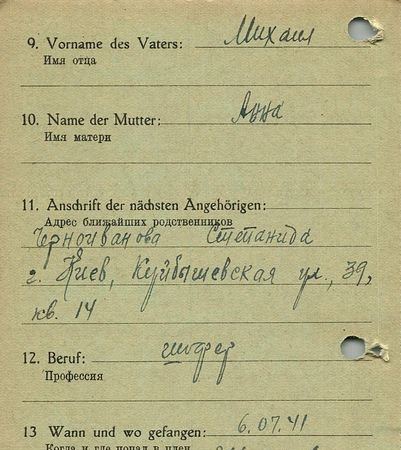 9. Vorname des Vaters: Михаил
Имя отца
10. Name der Mutter: Анна
Имя матери
11. Anschrift der nächsten Angehörigen:
Адрес ближайших родственников
Черноиванова Степанида
г. Киев, Куйбышевская ул., 39,
кв. 14
12. Beruf: шофер
Профессия
13 Wann und wo gefangen: 6.07.41
Когда и где попал в плен